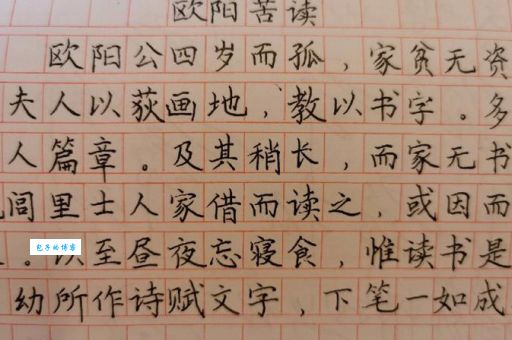 欧阳苦读
欧阳公四岁而孤，家贫无资
夫人以荻画地，教以书字。多
人篇章。及其稍长，而家无书
闾里士人家借而读之，或因而
。以至昼夜忘寝食，惟读书是
幼所作诗赋文字，下笔一如成
包子的博客